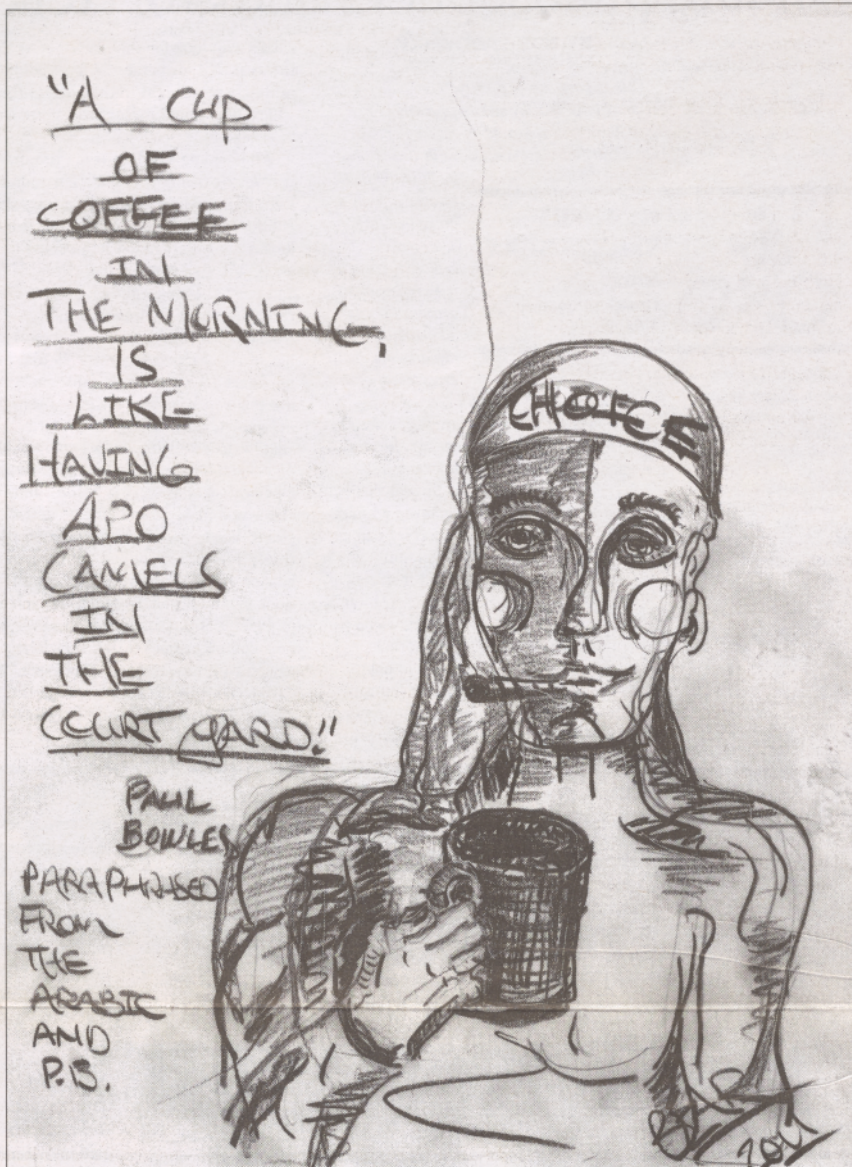 "A CUP
OF
COFFEE
IN
THE MORNING,
IS
LIKE
HAVING
400
CAMELS
IN
THE
COURT YARD."
PAUL
BOWLES
PARAPHRASED
FROM
THE
ARABIC
AND
P.B.
CHOICE